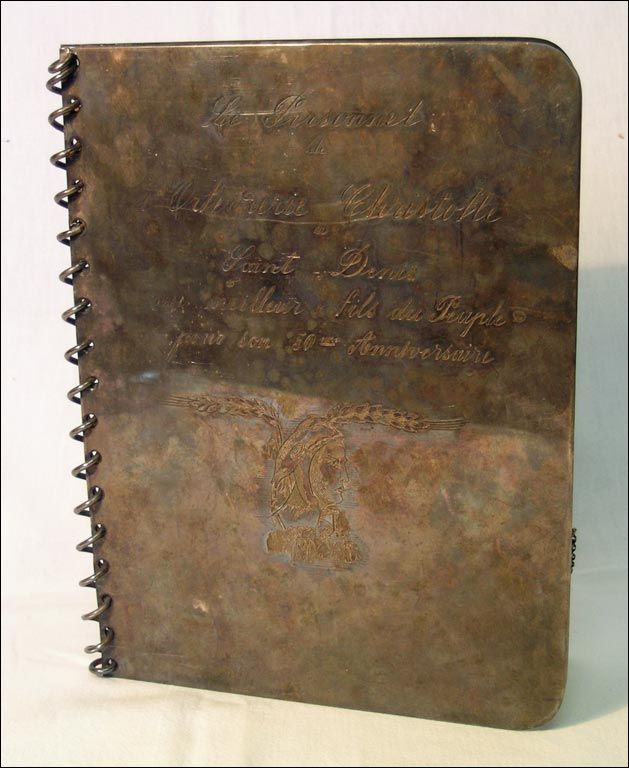 Le Personnel
de
l'Orfèvrerie Christofle
de
Saint Denis
au meilleur fils du Peuple
pour son 50me Anniversaire